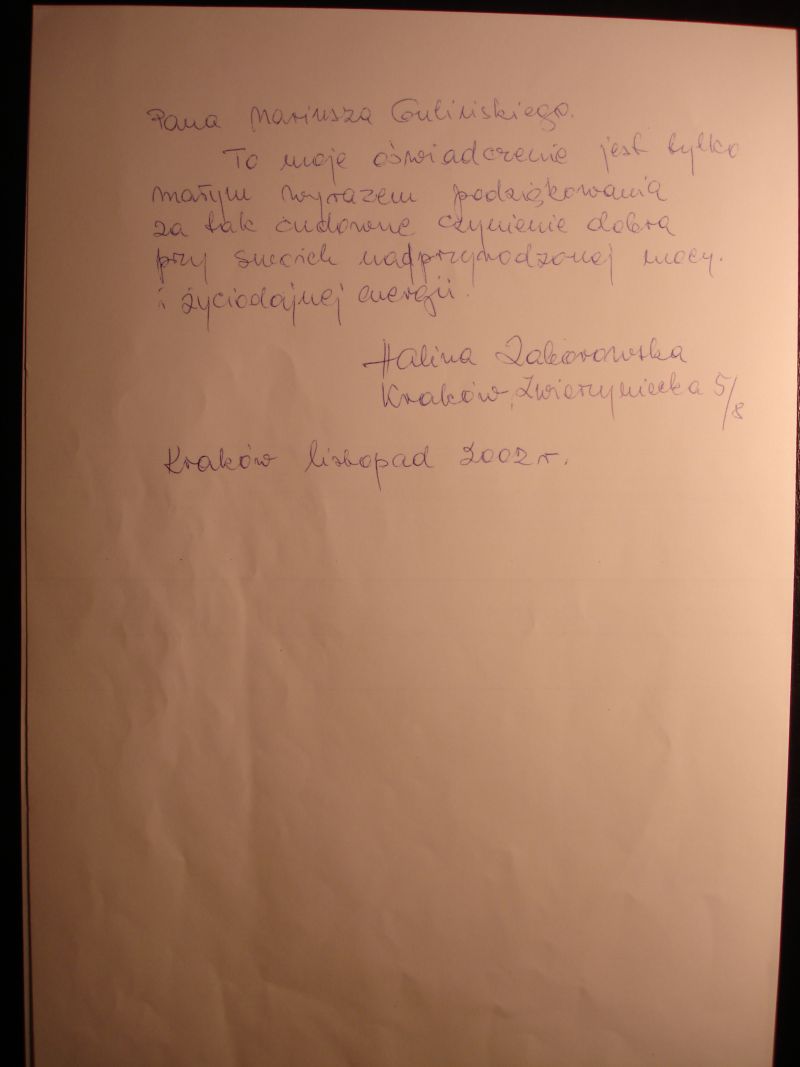 Pana Mariusza Gulińskiego.
To moje oświadczenie jest tylko
małym wyrazem podziękowania
za tak cudowne czynienie dobra
przy swoich nadprzyrodzonej mocy.
i życiodajnej energii.
Halina Zaborowska
Kraków, Zwierzyniecka 5/8
Kraków listopad 2002 r.